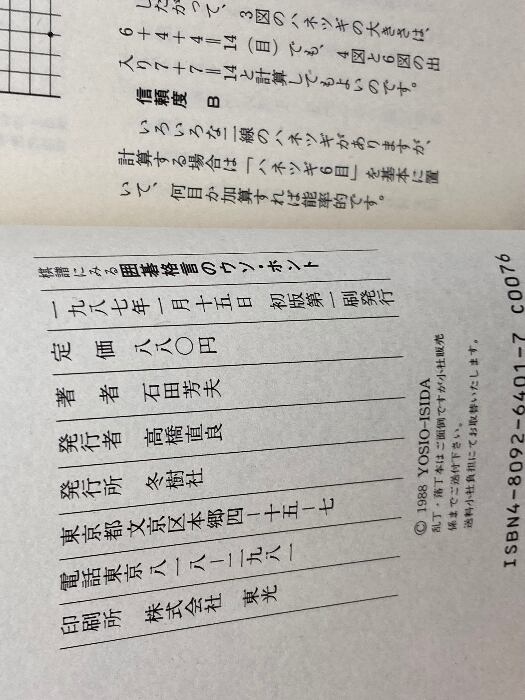 したがって、3図のハネツギの大きさは、
6＋4＋4＝14（目）でも、4図と6図の出
入り7＋7＝14と計算してもよいのです。
信頼度 B
いろいろな二線のハネツギがありますが、
計算する場合は「ハネツギ6目」を基本に置
いて、何目か加算すれば能率的です。
棋譜にみる囲碁格言のウソ・ホント
一九八七年一月十五日 初版第一刷発行
定価 八八〇円
著者 石田芳夫
発行者 高橋直良
発行所 冬樹社
東京都文京区本郷四－十五－七
電話東京八一八－二九八一
印刷所 株式会社 東光
© 1988 YOSIO-ISIDA
乱丁・落丁本はご面倒ですが小社販売
係までご送付下さい。
送料小社負担にてお取替いたします。
ISBN4-8092-6401-7 C0076